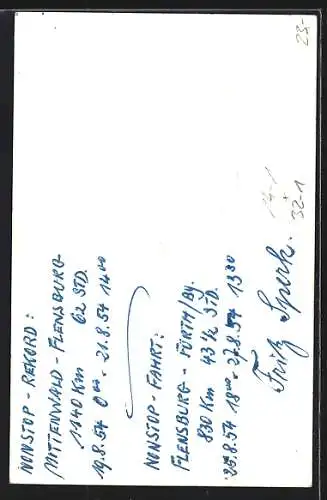 NONSTOP-REKORD:
MITTENWALD-FLENSBURG
1140 KM 62 STD.
19.8.54 0⁰⁰ - 21.8.54 14⁰⁰
NONSTOP-FAHRT:
FLENSBURG - FÜRTH/BY.
830 KM 43 ½ STD.
25.8.54 18⁰⁰ - 27.8.54 13³⁰
Fritz Sperk.
23-
32-1